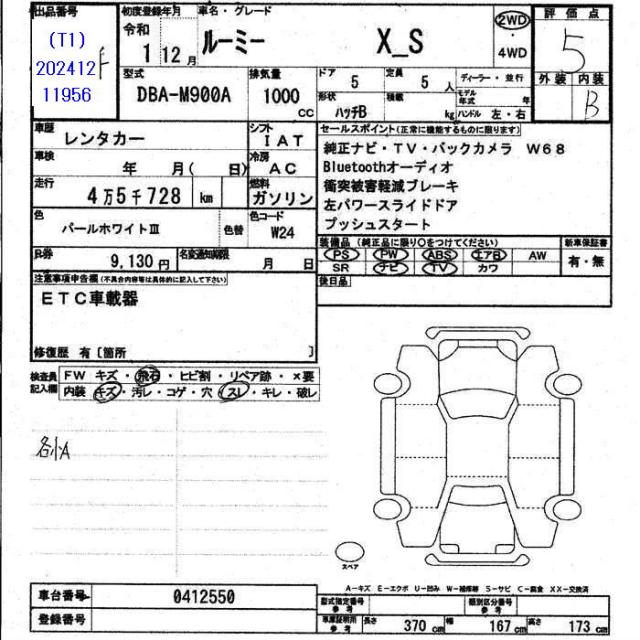 出品番号 初度登録年月 車名・グレード 2WD 評価点
(T1) 令和 ルーミー X_S ・
202412 1年12月 4WD 5
11956 型式 排気量 ドア 5 定員 5人 ディーラー・並行 外装 内装
DBA-M900A 1000cc 形状 ハッチB 積載 kg モデル年式 年 ハンドル 左・右 B
車歴 レンタカー シフト IAT セールスポイント(正常に機能するものに限ります)
車検 年 月( 日) 冷房 AC 純正ナビ・TV・バックカメラ W68
Bluetoothオーディオ
走行 4万5千728 km 燃料 ガソリン 衝突被害軽減ブレーキ
左パワースライドドア
色 パールホワイトⅢ 色替 色コード W24 プッシュスタート
R券 9,130円 名変通知期限 月 日 装備品(純正品に限り○をつけてください) 新車保証書
PS PW ABS エアB AW 有・無
SR ナビ TV カワ
注意事項申告欄(不具合内容等は具体的に記入して下さい) 後日品
ETC車載器
修復歴 有〔箇所 〕
検査員記入欄 FW キズ・飛石・ヒビ割・リペア跡・×要
内装 キズ・汚レ・コゲ・穴・スレ・キレ・破レ
各小A
スペア
A-キズ E-エクボ U-凹み W-補修跡 S-サビ C-腐食 XX-交換済
車台番号 0412550 型式指定番号 参考 類別区分番号 参考
登録番号 車庫証明用 参考 長さ 370cm 幅 167cm 高さ 173cm